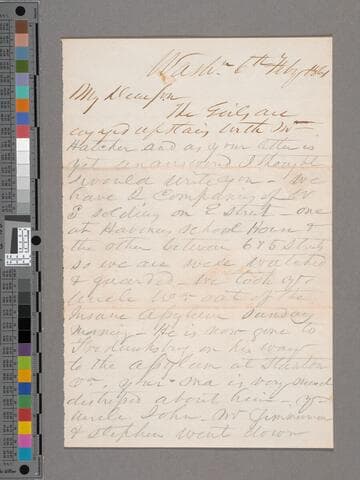 Washn 6th Feby 1861
My Dear son
The Girls are
engaged upstairs with Mr
Hatcher and as your letter is
yet unanswered I thought
I would write you - We
have 2 Companies of U
S soldiers on E street - one
at Havenes school House &
the other between 6 & 5 Streets
so we are well watched
& guarded - We took yr
uncle Wm out of the
Insane Asylum Sunday
morning - He is now gone to
Fredericksburg on his way
to the asylum at Stanton
Va. your Ma is very much
distressed about him - yr
uncle John - Mr Zimmerman
& Stephen went down